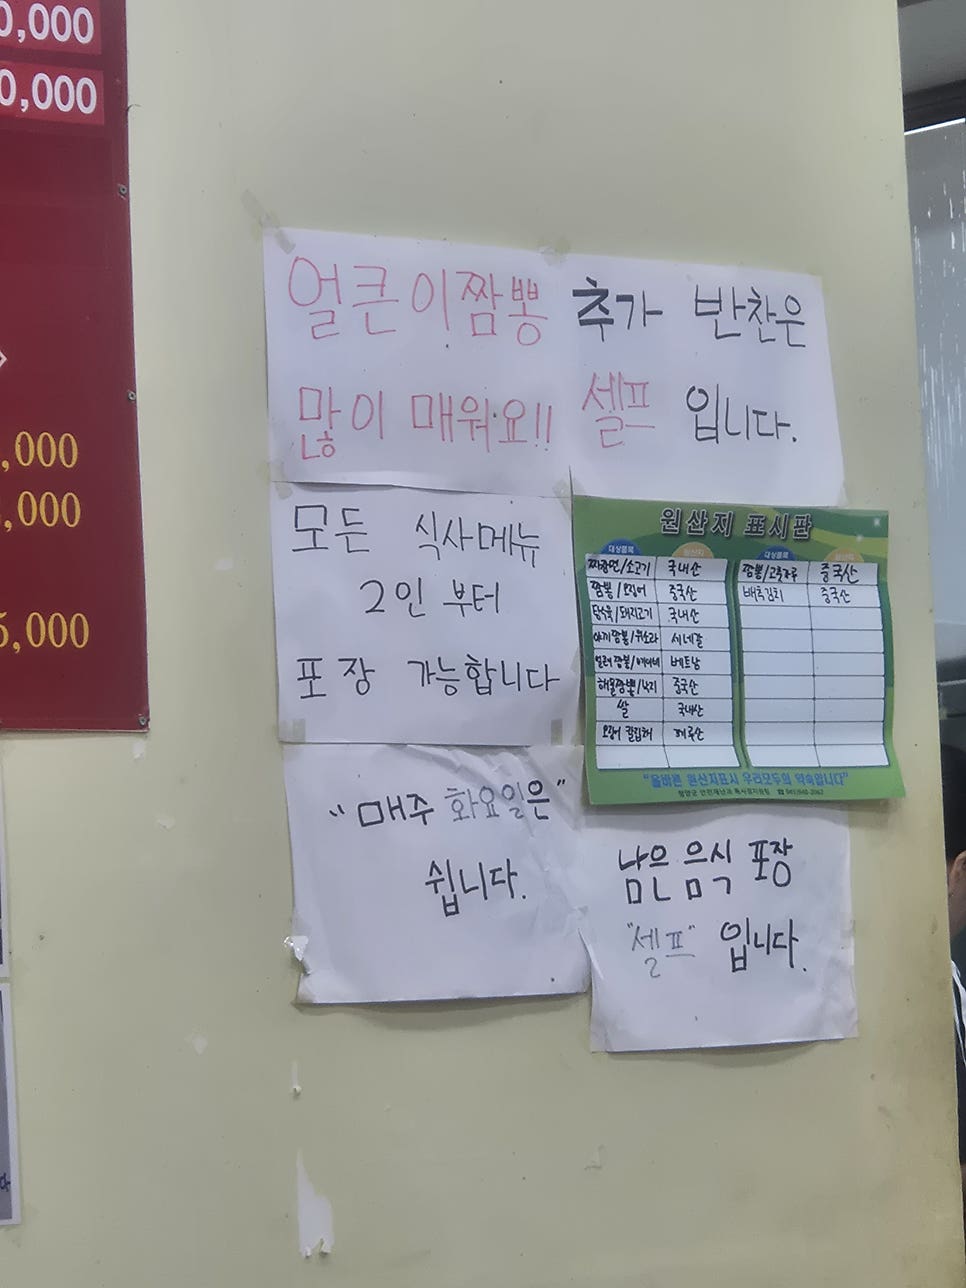 0,000
0,000
,000
,000
5,000
얼큰이짬뽕
많이 매워요!!
추가 반찬은
셀프 입니다.
모든 식사메뉴
2인 부터
포장 가능합니다
원산지 표시판
대상품목 원산지 대상품목 원산지
짜장면/소고기 국내산 짬뽕/고춧가루 중국산
짬뽕/오징어 중국산 배추김치 중국산
탕수육/돼지고기 국내산
세네갈
베트남
해물짬뽕/낙지 중국산
쌀 국내산
"올바른 원산지표시 우리모두의 약속입니다"
"매주 화요일은"
쉽니다.
남은 음식 포장
"셀프" 입니다.